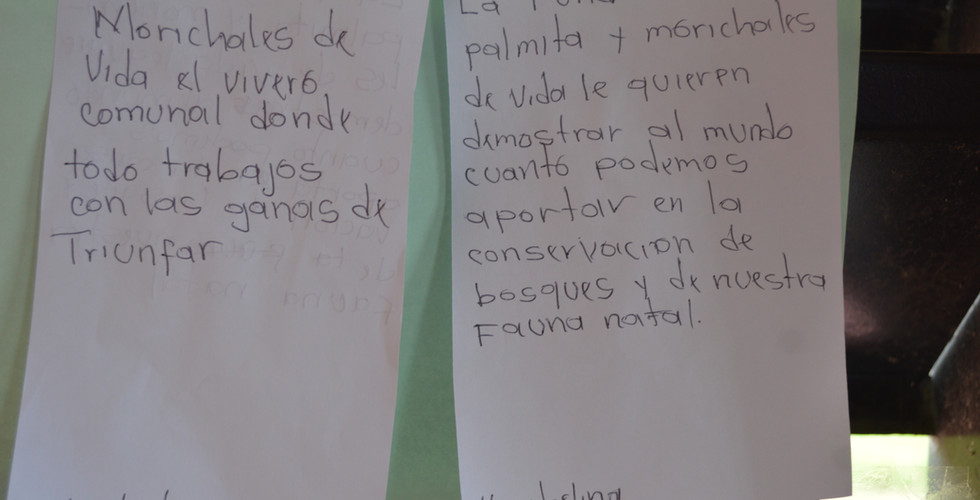 Morichales de
Vida el vivero
comunal donde
todo trabajos
con las ganas de
Triunfar
La
palmita y morichales
de vida le quieren
demostrar al mundo
cuanto podemos
aportar en la
conservacion de
bosques y de nuestra
Fauna natal.